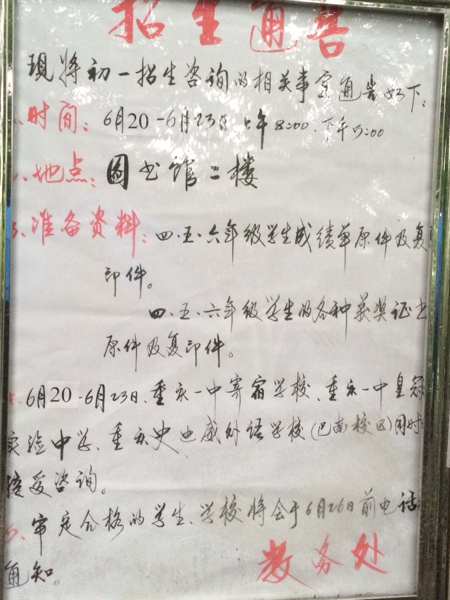 招生通告
现将初一招生咨询的相关事宜通告如下:
时间: 6月20-6月23日 上午8:00.下午5:00
地点: 图书馆二楼
3、准备资料: 四.五.六年级学生成绩单原件及复
印件。
四.五.六年级学生的各种获奖证书
原件及复印件。
6月20-6月23日.重庆一中寄宿学校、重庆一中皇冠
实验中学、重庆史迪威外语学校(巴南校区)同时
接受咨询。
审定合格的学生、学校将会于6月26日前电话
通知。
教务处